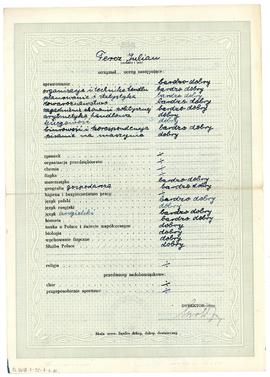 Feroz Julian
otrzymał oceny następujące:
sprawowanie bardzo dobry
organizacja i technika handlu bardzo dobry
planowanie i statystyka bardzo dobry
towaroznawstwo bardzo dobry
zagadnienia ekonomii politycznej bardzo dobry
arytmetyka handlowa bardzo dobry
księgowość dobry
biurowość i korespondencja bardzo dobry
pisanie na maszynie dobry
rysunek
organizacja przedsiębiorstw
chemia
fizyka
matematyka bardzo dobry
geografia gospodarcza bardzo dobry
higiena i bezpieczeństwo pracy
język polski dobry
język rosyjski dobry
język angielski bardzo dobry
historia bardzo dobry
nauka o Polsce i świecie współczesnym dobry
biologia dobry
wychowanie fizyczne dobry
Służba Polsce dobry
religia
przedmioty nadobowiązkowe:
chór
przysposobienie sportowe
DYREKTOR
Skala ocen: bardzo dobry, dobry, dostateczny